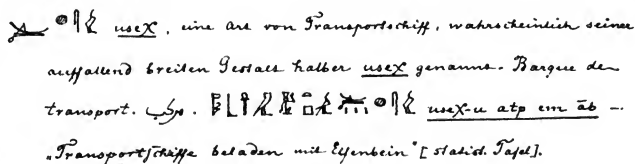 useχ, eine Art von Transportschiff, wahrscheinlich seiner
auffallend breiten Gestalt halber useχ genannt. Barque de
transport. مركب. useχ-u atp em āb —
„Transportschiffe beladen mit Elfenbein" [statist. Tafel].